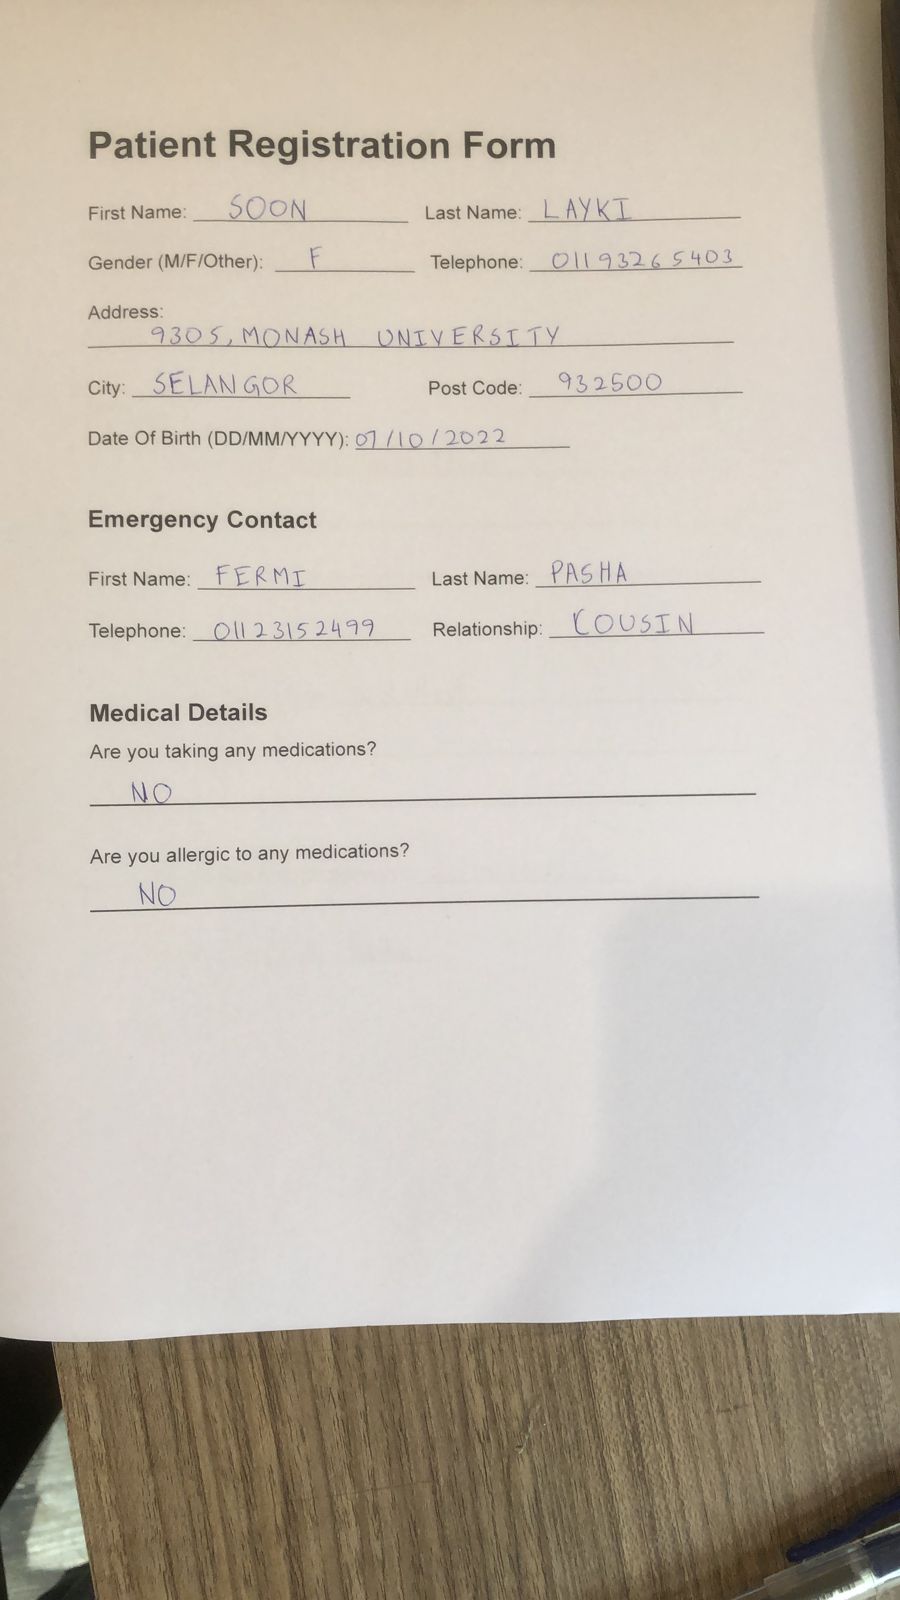 Patient Registration Form
First Name: SOON Last Name: LAYKI
Gender (M/F/Other): F Telephone: 01193265403
Address:
9305, MONASH UNIVERSITY
City: SELANGOR Post Code: 932500
Date Of Birth (DD/MM/YYYY): 07/10/2022
Emergency Contact
First Name: FERMI Last Name: PASHA
Telephone: 01123152499 Relationship: COUSIN
Medical Details
Are you taking any medications?
NO
Are you allergic to any medications?
NO